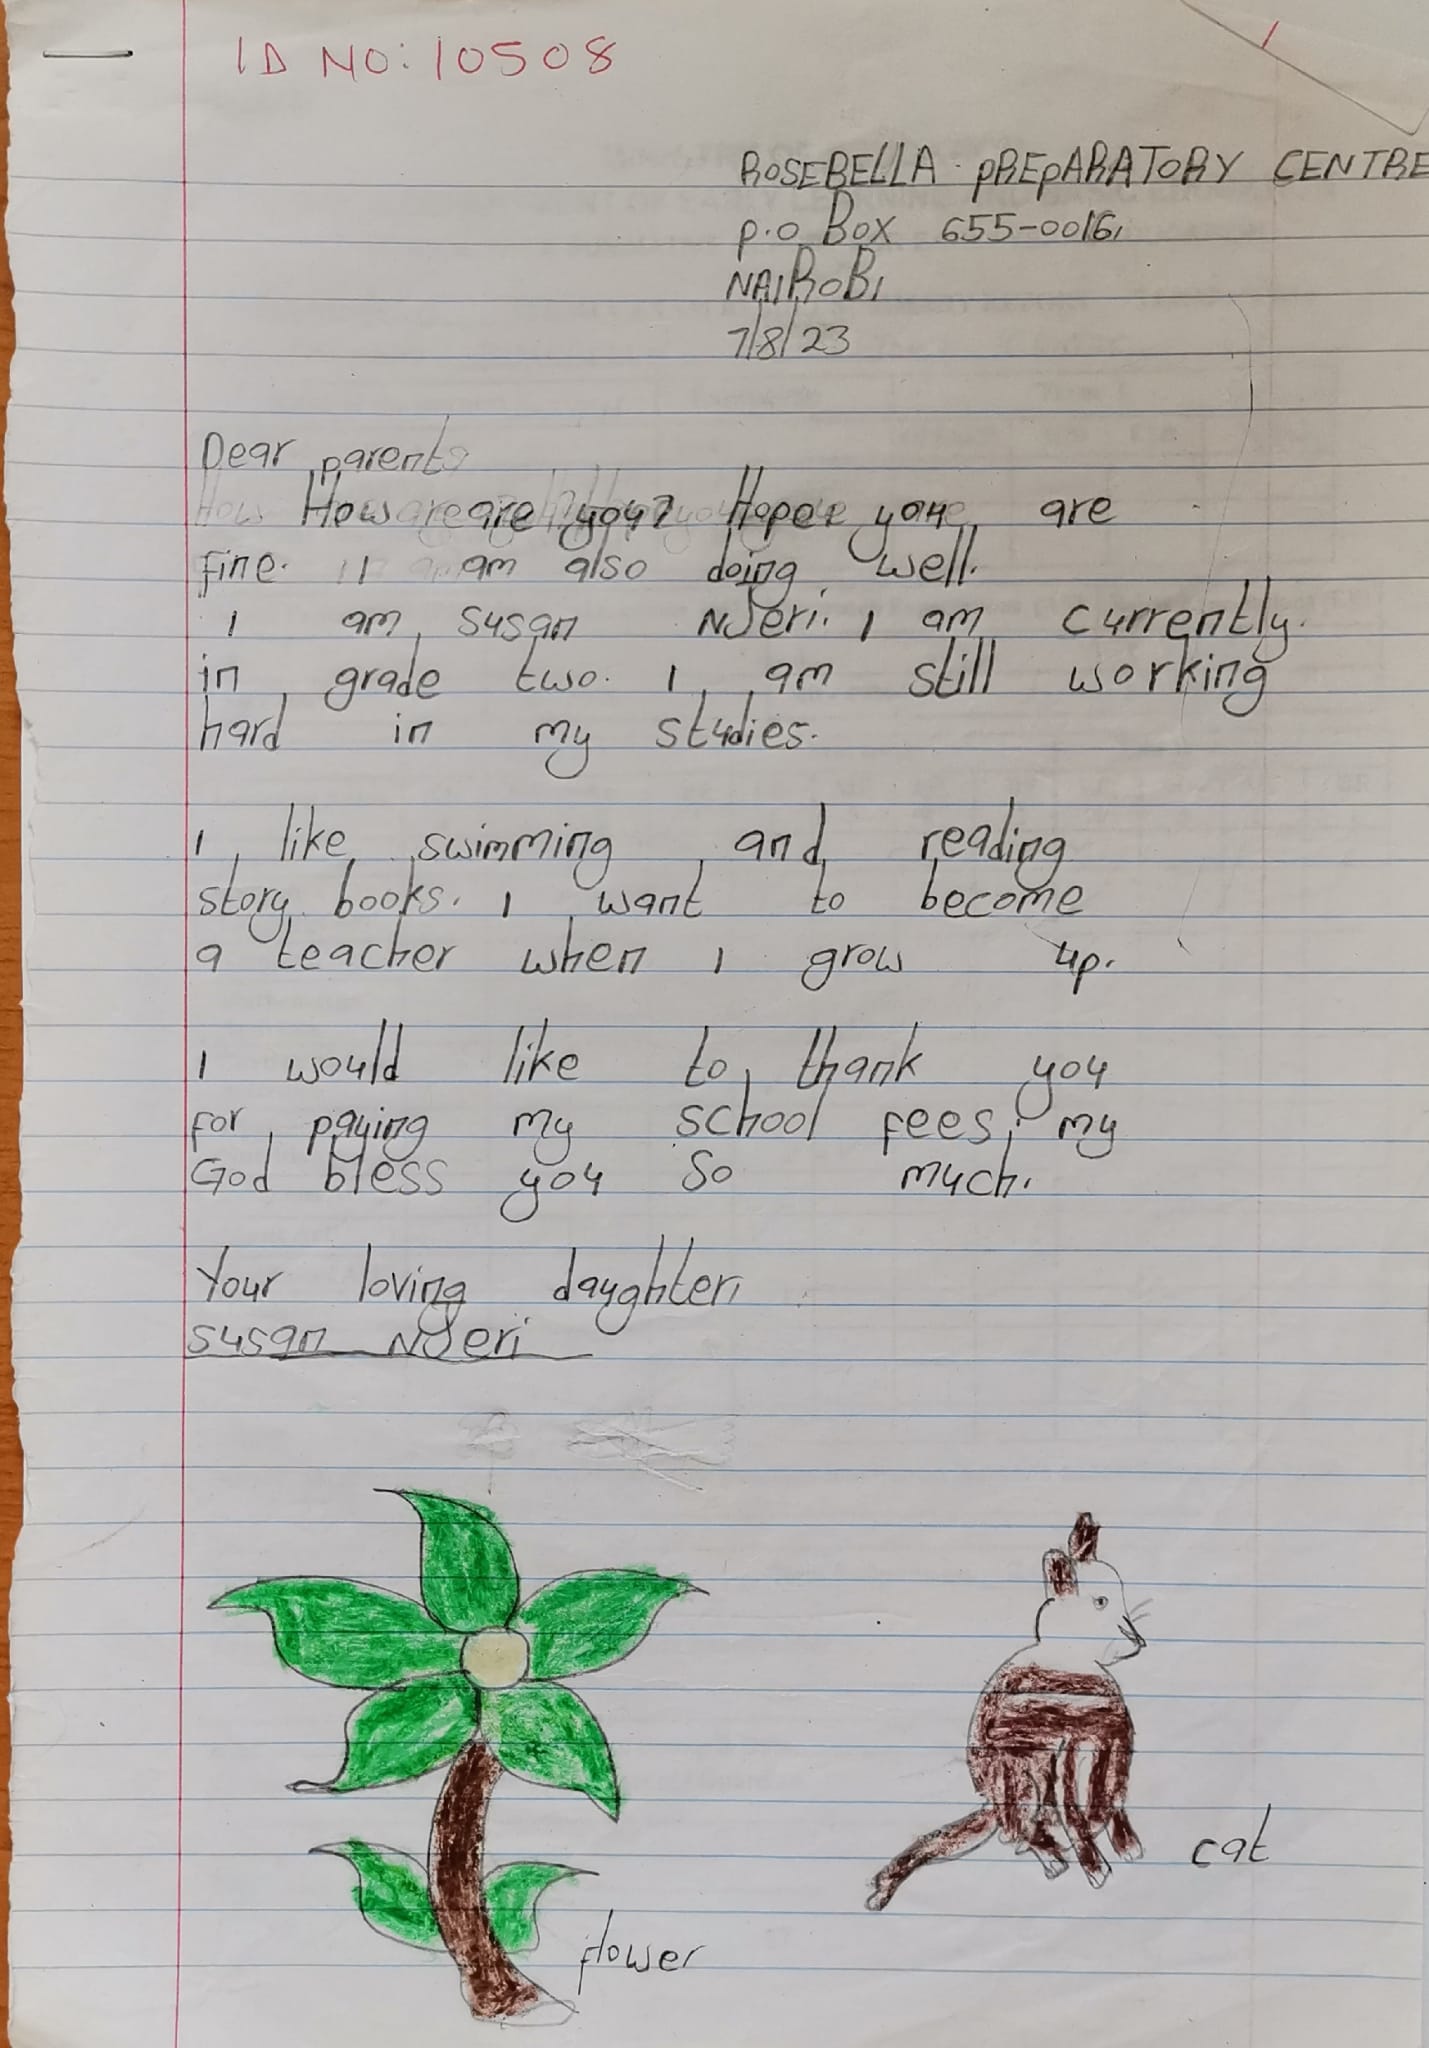 ID NO: 10508
ROSEBELLA PREPARATORY CENTRE
P.O BOX 655-0016,
NAIROBI
7/8/23
Dear parents
How are you? Hope you are
fine. I am also doing well.
I am susan NJeri. I am currently.
in grade two. I am still working
hard in my studies.
I like swimming and reading
story books. I want to become
a teacher when I grow up.
I would like to thank you
for paying my school fees. my
God bless you so much.
Your loving daughter,
susan NJeri
cat
flower